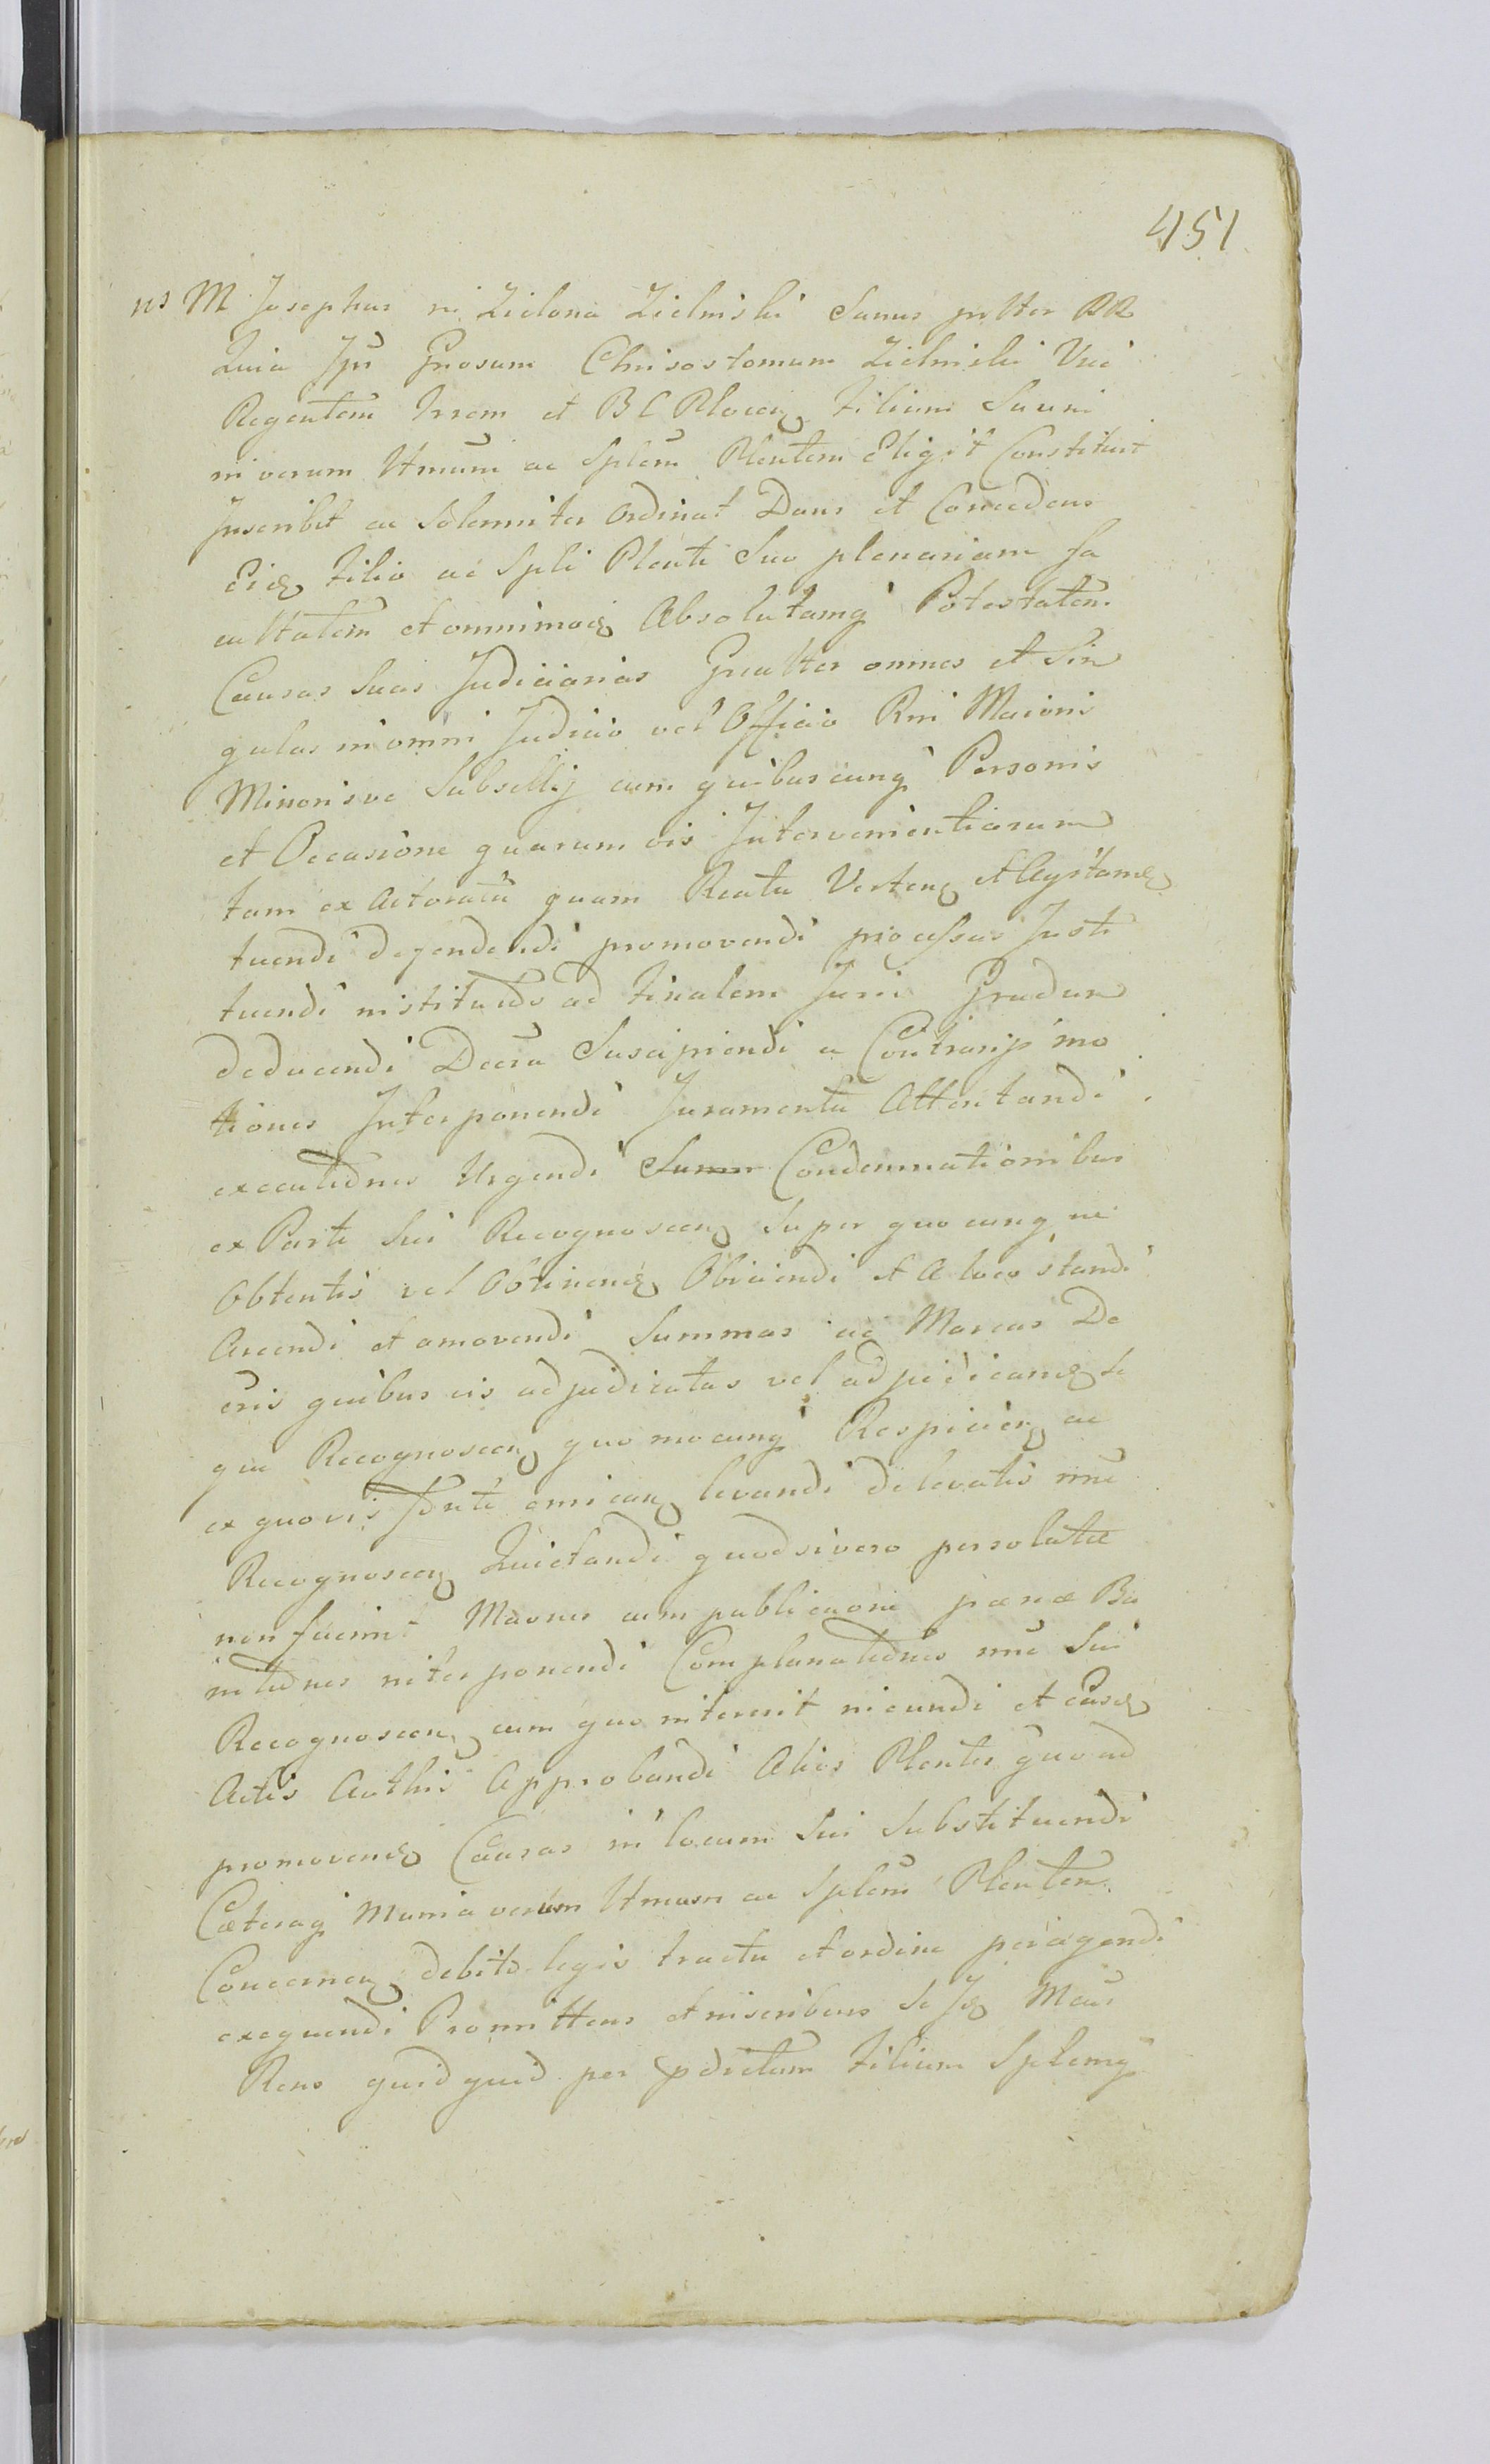 451
ns M Josephus in Zielona Zielinski Sanus pntter RR
Quia Ipse Gnosum Chrisostomum Zielinski Vice
Regentem Trrem et B C Plocen. Filium Suum
in verum Ltmum ac Splem Plentem Eligit Constituit
Inscribit ac Solemniter Ordinat Dans et Concedens
Eid. Filio ac Spli Plenti Suo plenariam fa
cultatem et omnimod. Absolutamq Potestatem
Causas Suas Judiciarias Gnaliter omnes et Sin
gulas in omni Judicio vel Officio Rni Maioris
Minorisve Subsellij cum quibuscunq Personis
et Occasione quarum vis Intervenientiarum
tam ex Actoratu quam Reatu Verten. et Agitand.
tuendi defendendi promovendi processus Insti
tuendi institutos ad finalem Juris Gradum
deducendi Decra Suscipiendi a Contrarijs mo
tiones Interponendi Juramenta Attentandi
executiones Urgendi Condemnationibus
ex Parte Sui Recognoscen. Super quocunq ne
Obtentis vel Obtinend. Obiiciendi et A loco standi
Arcendi et amovendi Summas ac Marcas De
cris quibus vis adjudicatas vel adjudicand. Se
que Recognoscen. quomocunq Respicien. ac
ex quovis fonte emican. levandi de levatis nne
Recognoscen. Quietandi quodsi vero persolutæ
non fuerint Maones cum publicaone pænæ Ba
nitiones interponendi Complanationes nne Sui
Recognoscen. cum quo intererit ineundi et easd.
Actis Authis Approbandi Alios Plentes quoad
promovend. Causas in locum Sui Substituendi
Cæteraq Munia verum Ltmum ac Splem Plentem
Concernen. debito legis tractu et ordine peragendi
exequendi Promittens et inscribens Se Id. Meus
Rens quid quid per pdictum Filium Splemq